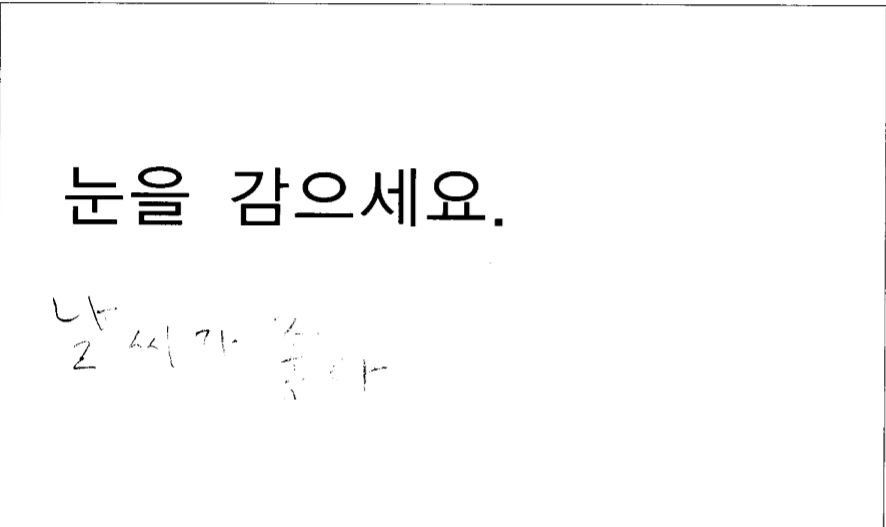 눈을 감으세요.
날씨가 좋아